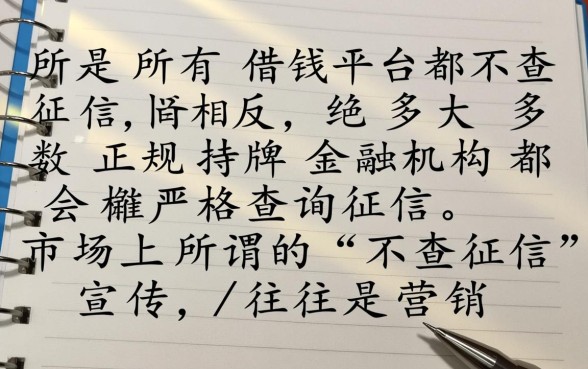 所是 所有 借钱平台都不查
征信,相反，绝 多大 多
数 正规 持牌 金融机构 都
会 严格查询征信。
市场上所谓的“不查征信”
宣传, /往往是营销